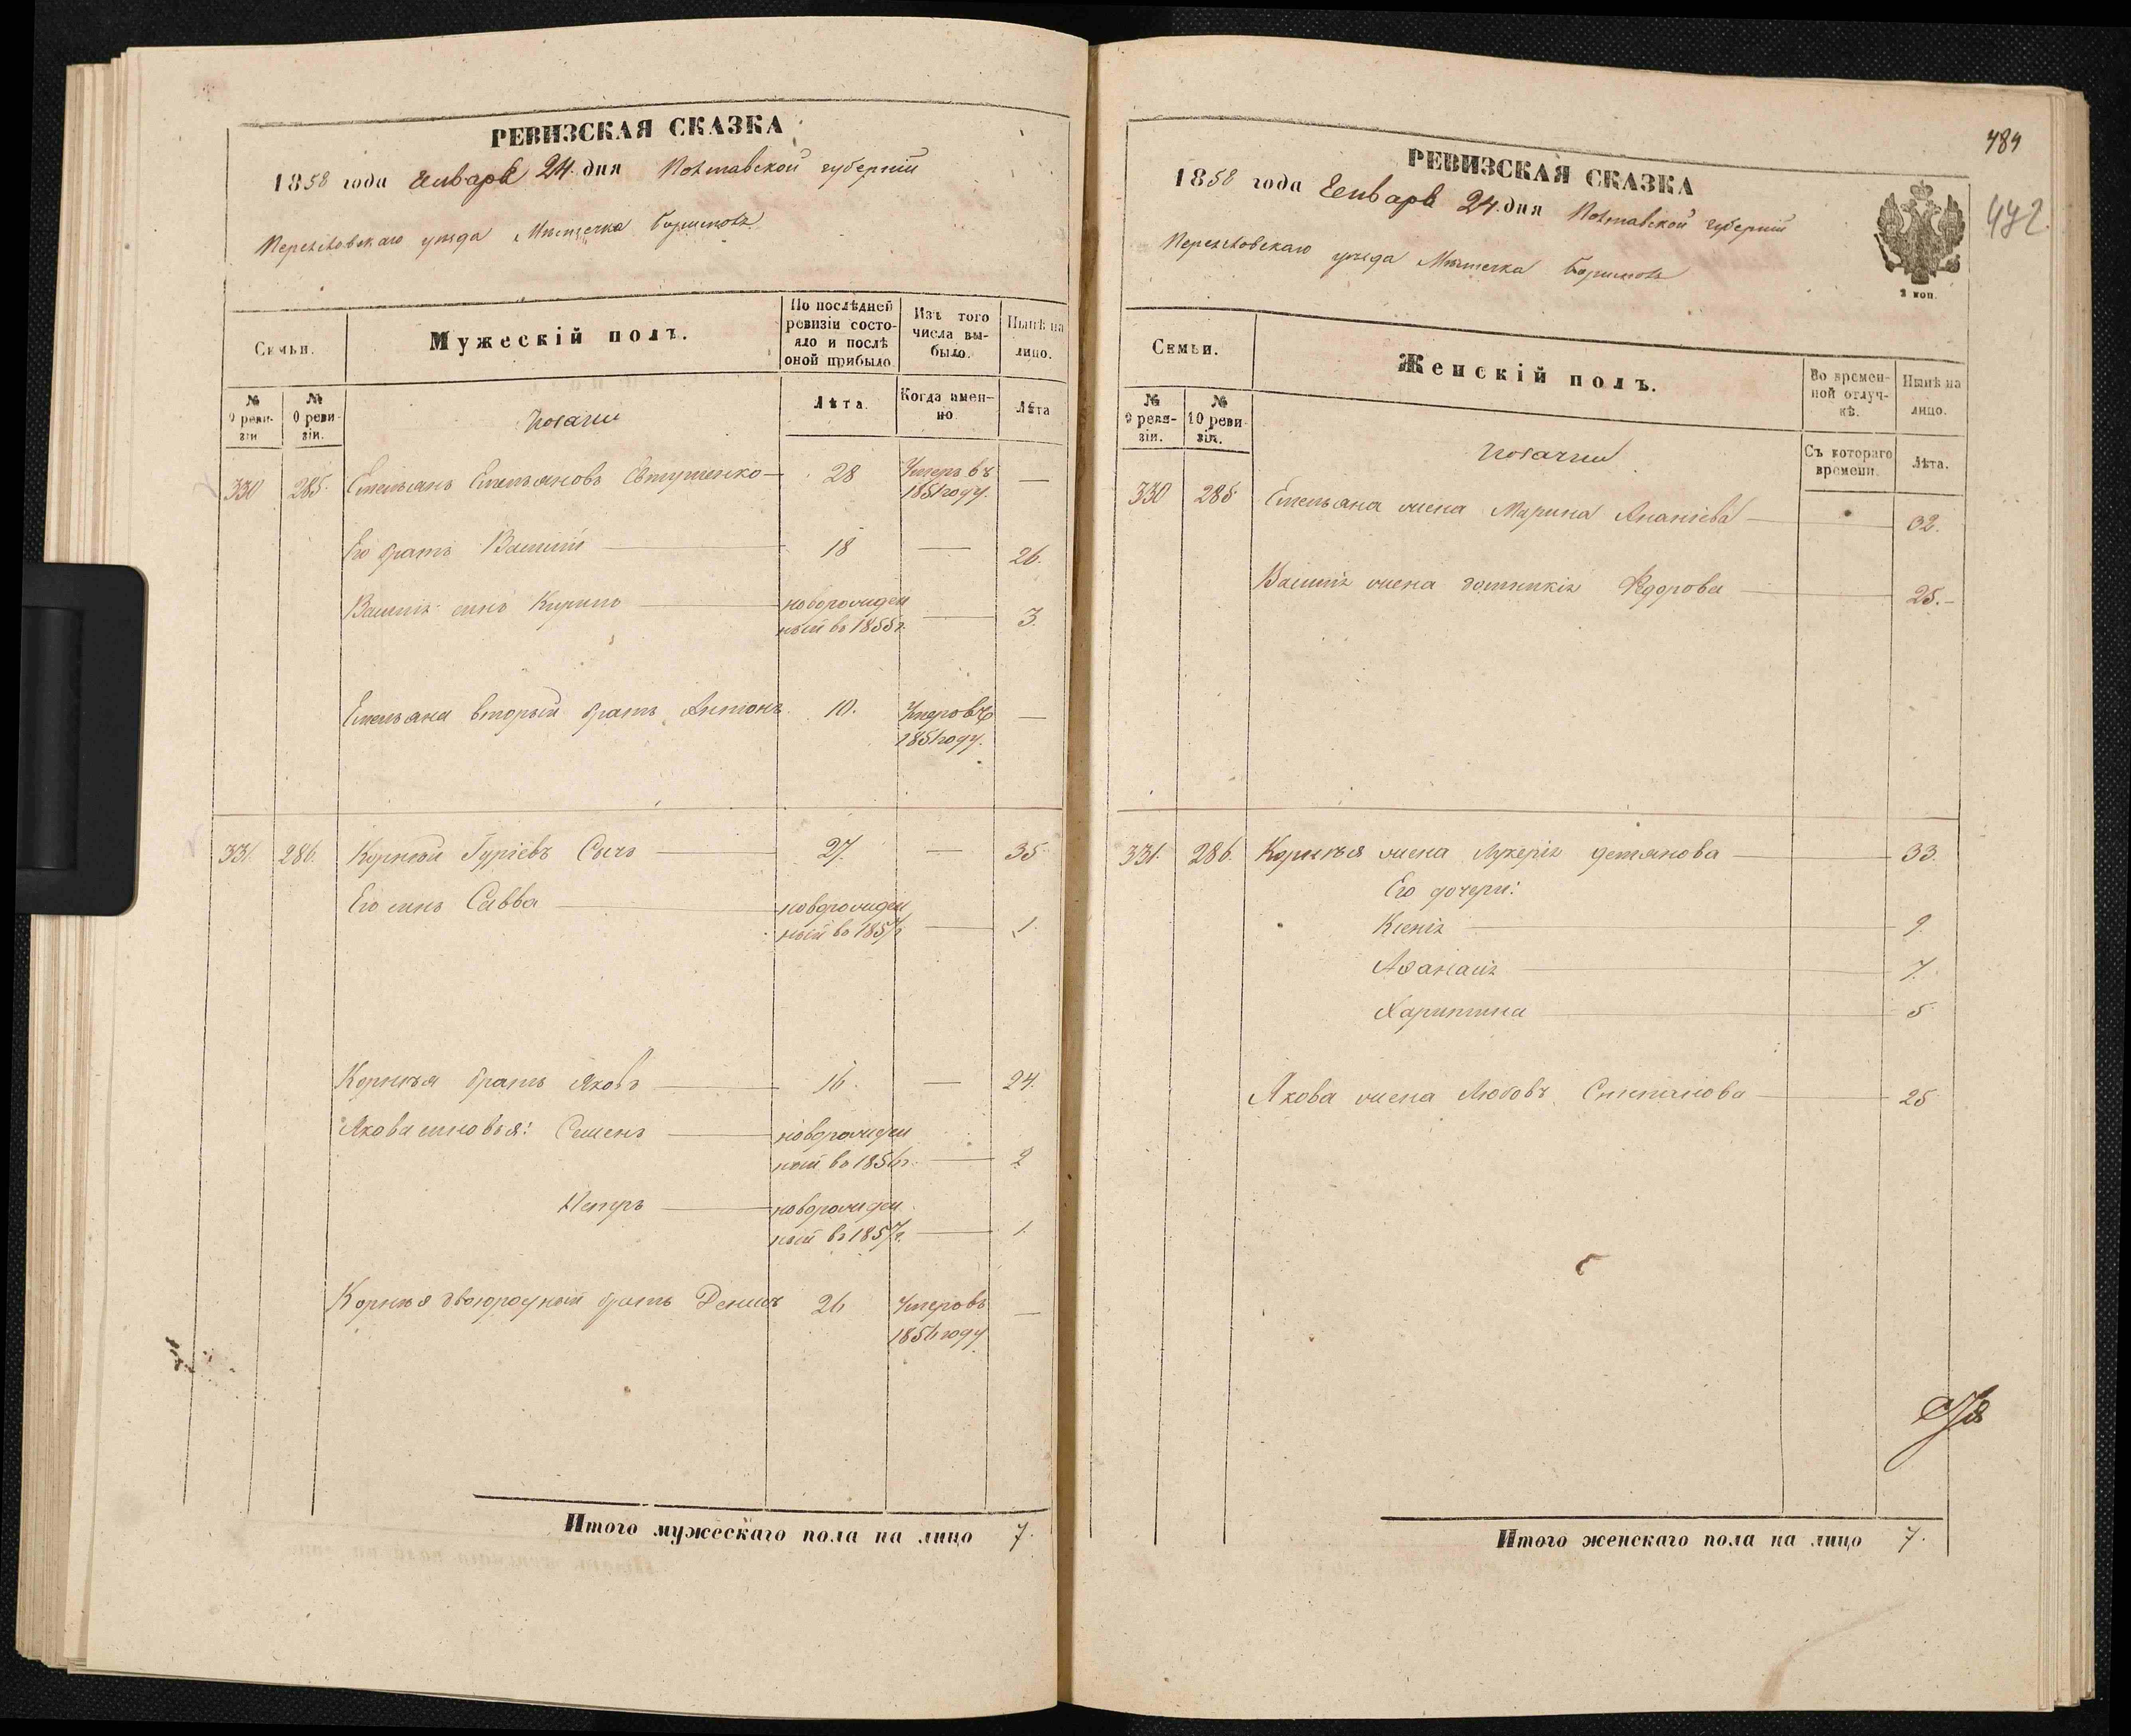 РЕВИЗСКАЯ СКАЗКА
1858 года Генваря 24 дня Полтавской губернии
уезда Местечка
Семьи.
Мужескій полъ.
По послѣдней ревизіи состояло и послѣ оной прибыло
Изъ того числа выбыло.
Нынѣ на лицо.
№ 9 ревизіи
№ 10 ревизіи.
Козачіи
Лѣта.
Когда именно.
Лѣта
330 285. Емельянъ Емельяновъ Евтушенко 28 Умеръ въ —
1851 году.
Его братъ Василій 18 — 26.
Василія сынъ Кирило новорожден
ный въ 1855 г. — 3.
Емельяна вторый братъ Антонъ 10. Умеръ въ —
1851 году.
331. 286. Корнѣй Гуріевъ Сычъ 27. — 35
Его сынъ Савва новорожден
ный въ 1857 г — 1.
Корнѣя братъ Яковъ 16. — 24.
Якова сыновья: Семенъ новорожден
ный въ 1856 г. — 2
Петръ новорожден
ный въ 1857 г. — 1.
Корнѣя двоюродный братъ Денисъ 26 Умеръ въ —
1856 году
Итого мужескаго пола на лицо 7.
484
442.
РЕВИЗСКАЯ СКАЗКА
1858 года Генваря 24. дня Полтавской губерніи
уезда Местечка
Семьи.
Женскій полъ.
Во временной отлучкѣ.
Нынѣ на лицо.
№ 9 ревизіи.
№ 10 ревизіи.
Козачіи
Съ котораго времени.
Лѣта.
330 285 Емельяна жена Марина Ананіева 32.
Василія жена Домникія Федорова 25.
331. 286. Корнѣя жена Лукерія Демянова 33.
Его дочери:
Ксенія 9.
Афанасія 7.
Харитина 5
Якова жена Любовъ Степанова 25
Итого женскаго пола на лицо 7.